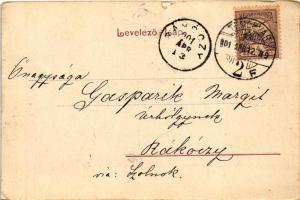 Levelező-lap
RÁKÓCZY
901
ÁPR
13
Őnagysága
Gasparik Margit
úrhölgynek
Rákóczy
via: Szolnok.